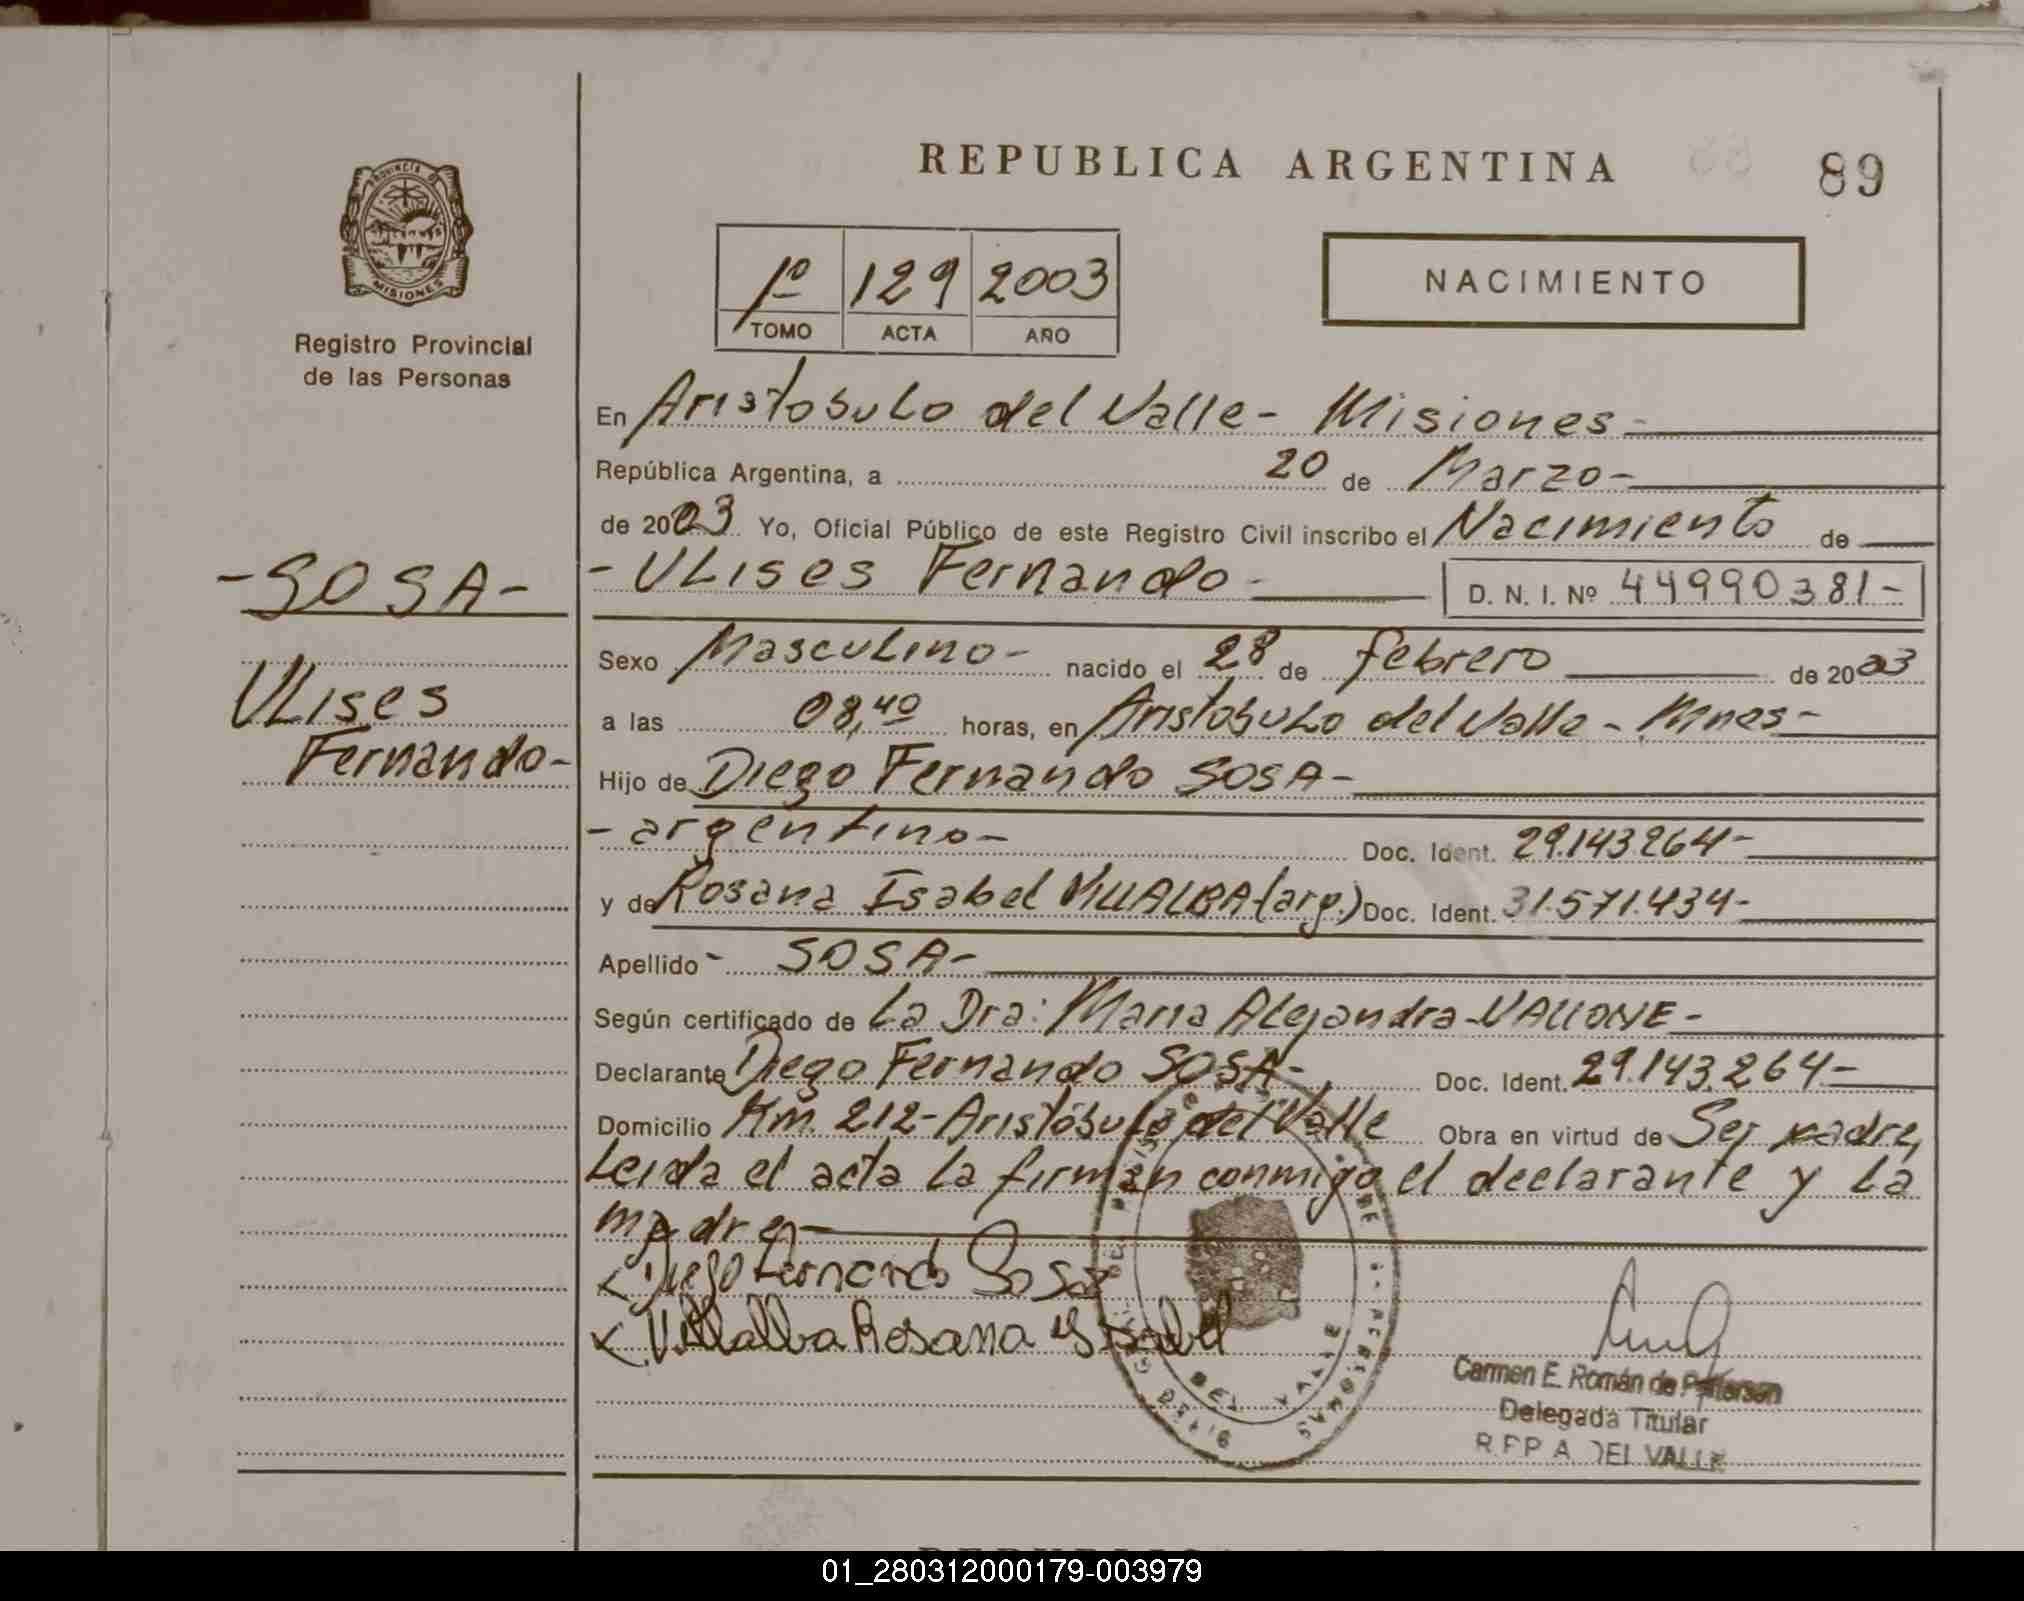 REPUBLICA ARGENTINA
89
PROVINCIA DE
MISIONES
Registro Provincial
de las Personas
1º 129 2003
TOMO ACTA AÑO
NACIMIENTO
En Aristobulo del Valle - Misiones -
República Argentina, a 20 de Marzo -
de 2003 Yo, Oficial Público de este Registro Civil inscribo el Nacimiento de
- SOSA -
Ulises
Fernando -
- Ulises Fernando - D. N. I. Nº 44990381 -
Sexo Masculino - nacido el 28 de febrero de 2003
a las 08,40 horas, en Aristobulo del Valle - Mnes -
Hijo de Diego Fernando SOSA -
- argentino - Doc. Ident. 29.143.264 -
y de Rosana Isabel VILLALBA (arg.) Doc. Ident. 31.571.434 -
Apellido - SOSA -
Según certificado de La Dra: Maria Alejandra VALLONE -
Declarante Diego Fernando SOSA - Doc. Ident. 29.143.264 -
Domicilio Km. 212 - Aristóbulo del Valle Obra en virtud de Ser padre,
Leida el acta la firman conmigo el declarante y la
madre -
x Diego Fernando Sosa
x Villalba Rosana Ysabel
DEL VALLE
Carmen E. Román de
Delegada Titular
R.P.P. A. DEL VALLE
01_280312000179-003979